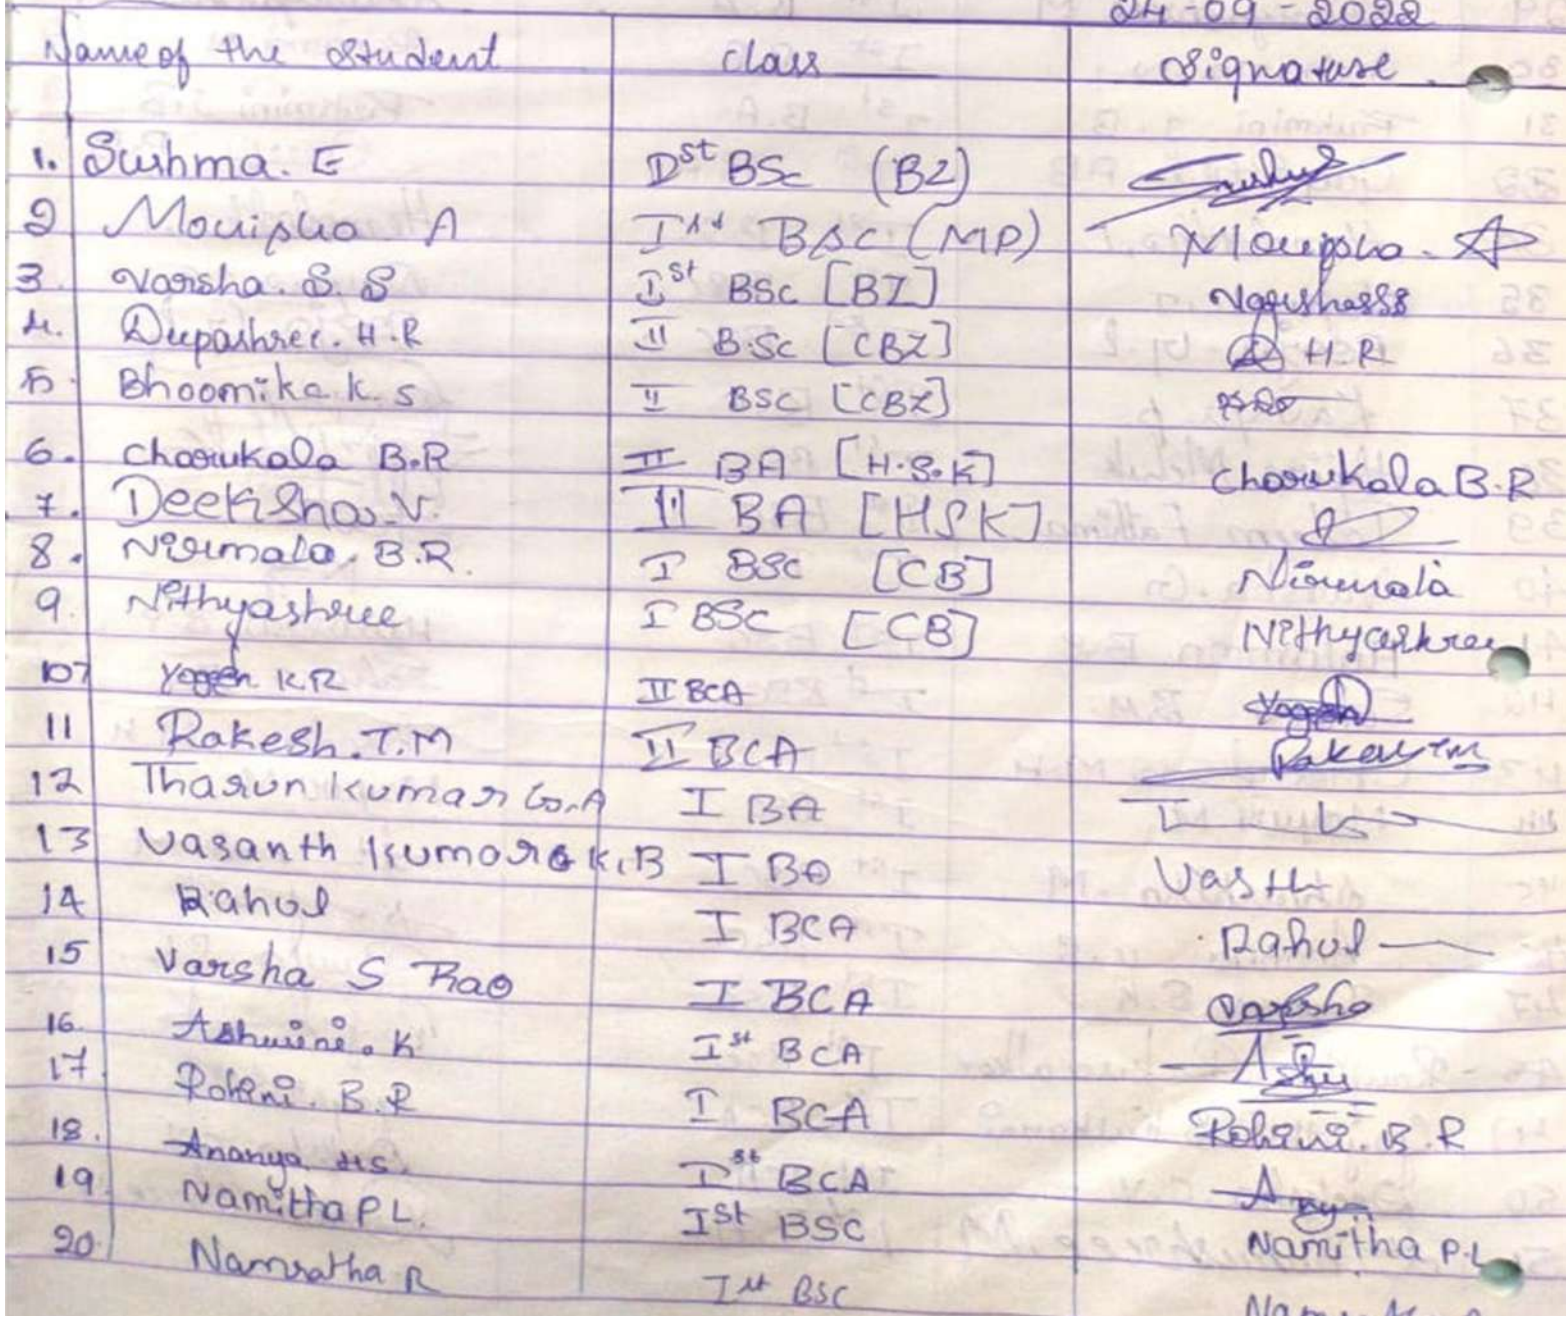 24-09-2022
Name of the Student class Signature
1. Sushma. E Ist BSc (BZ)
2 Mouipsha A Ist BSC (MP) Mouipsha. A
3 Varsha. S. S Ist BSc [BZ] Varshass
4. Deepashree. H.R II B.Sc [CBZ] H.R
5. Bhoomika K. S II BSC [CBZ]
6. Charukala B.R II BA [H.S.K] Charukala B.R
7. Deeksha. V. II BA [HSK]
8. Nirmala. B.R. I BSC [CB] Nirmala
9. Nithyashree I BSC [CB] Nithyashree
10 Yogesh K R II BCA Yogesh
11 Rakesh. T.M II BCA Rakesh TM
12 Tharun Kumar G.A I BA
13 Vasanth Kumara K.B I BA Vasth
14 Rahul I BCA Rahul
15 Varsha S Rao I BCA Varsha
16. Ashwini. K Ist BCA Ashu
17. Rohini. B.R I BCA Rohini. B.R
18. Ananya H S. Ist BCA
19. Namitha P L. Ist BSC Namitha P.L
20. Namratha R Ist BSC